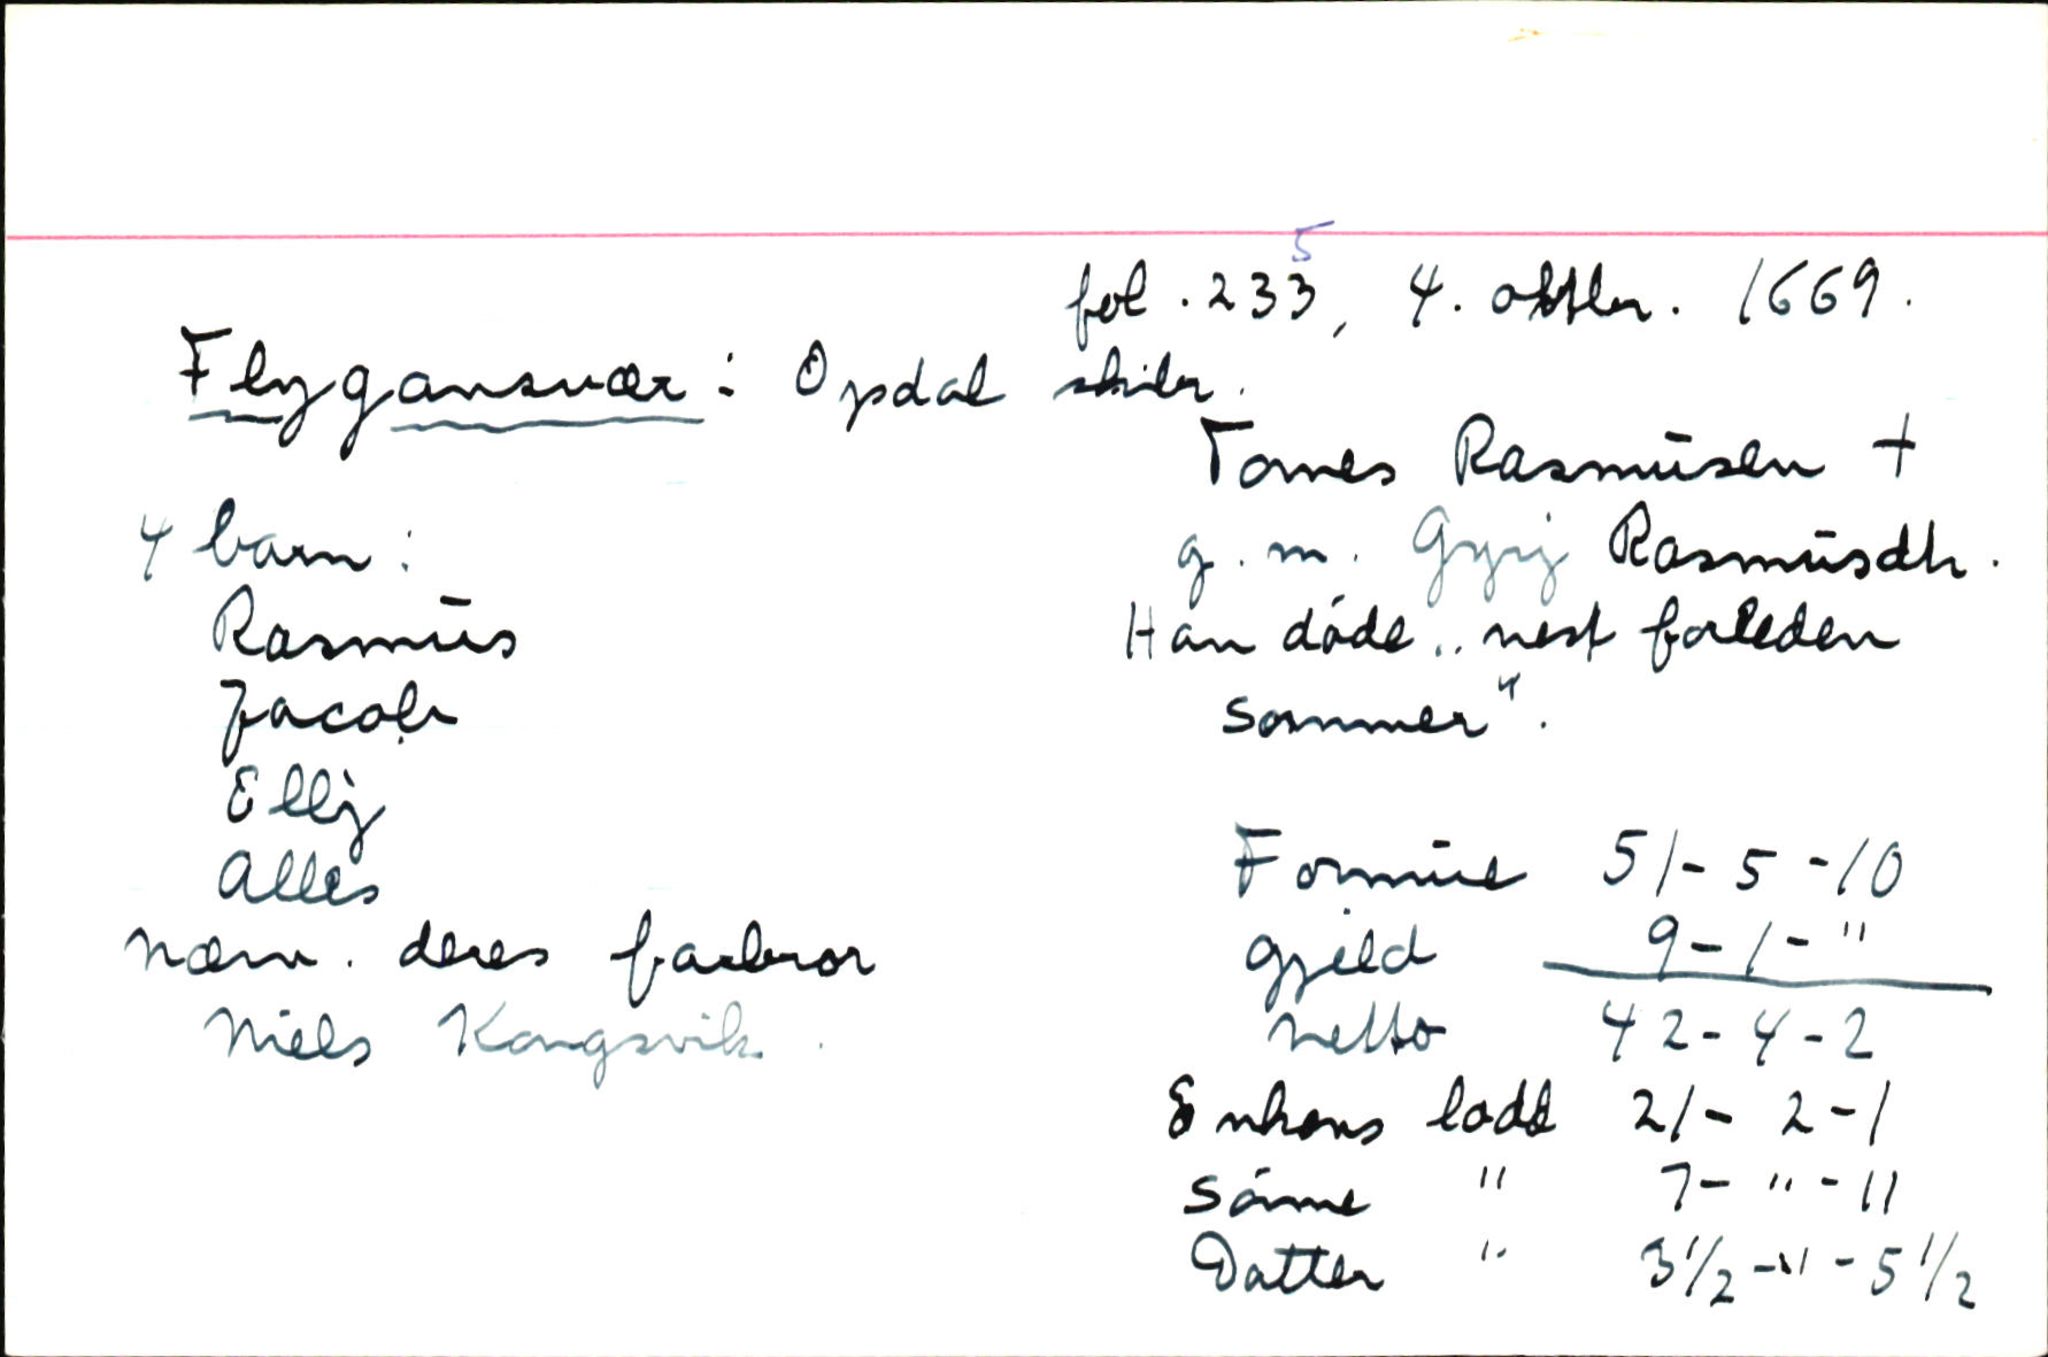 5
fol. 233, 4. oktbr. 1669.
Flygansvær: Opdal skibr.
Tomes Rasmūsen †
g. m. Gyrj Rasmūsdtr.
Han døde „nest forleden
sommer".
4 barn:
Rasmūs
Jacob
Ellj
Alles
nærv. deres farbror
Niels Kongsvik.
Formūe 51-5-10
gjeld 9-1-"
netto 42-4-2
Enkens lodd 21-2-1
Sønne " 7-"-11
Datter " 3½-"-5½